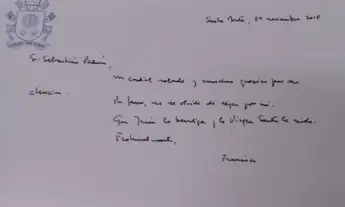 Santa Marta, 20 noviembre 2018
Sr. Sebastián
un cordial saludo y muchas gracias por su
atención.
Por favor, no se olvide de rezar por mí.
Que Jesús lo bendiga y la Virgen Santa lo cuide.
Fraternalmente,
Francisco